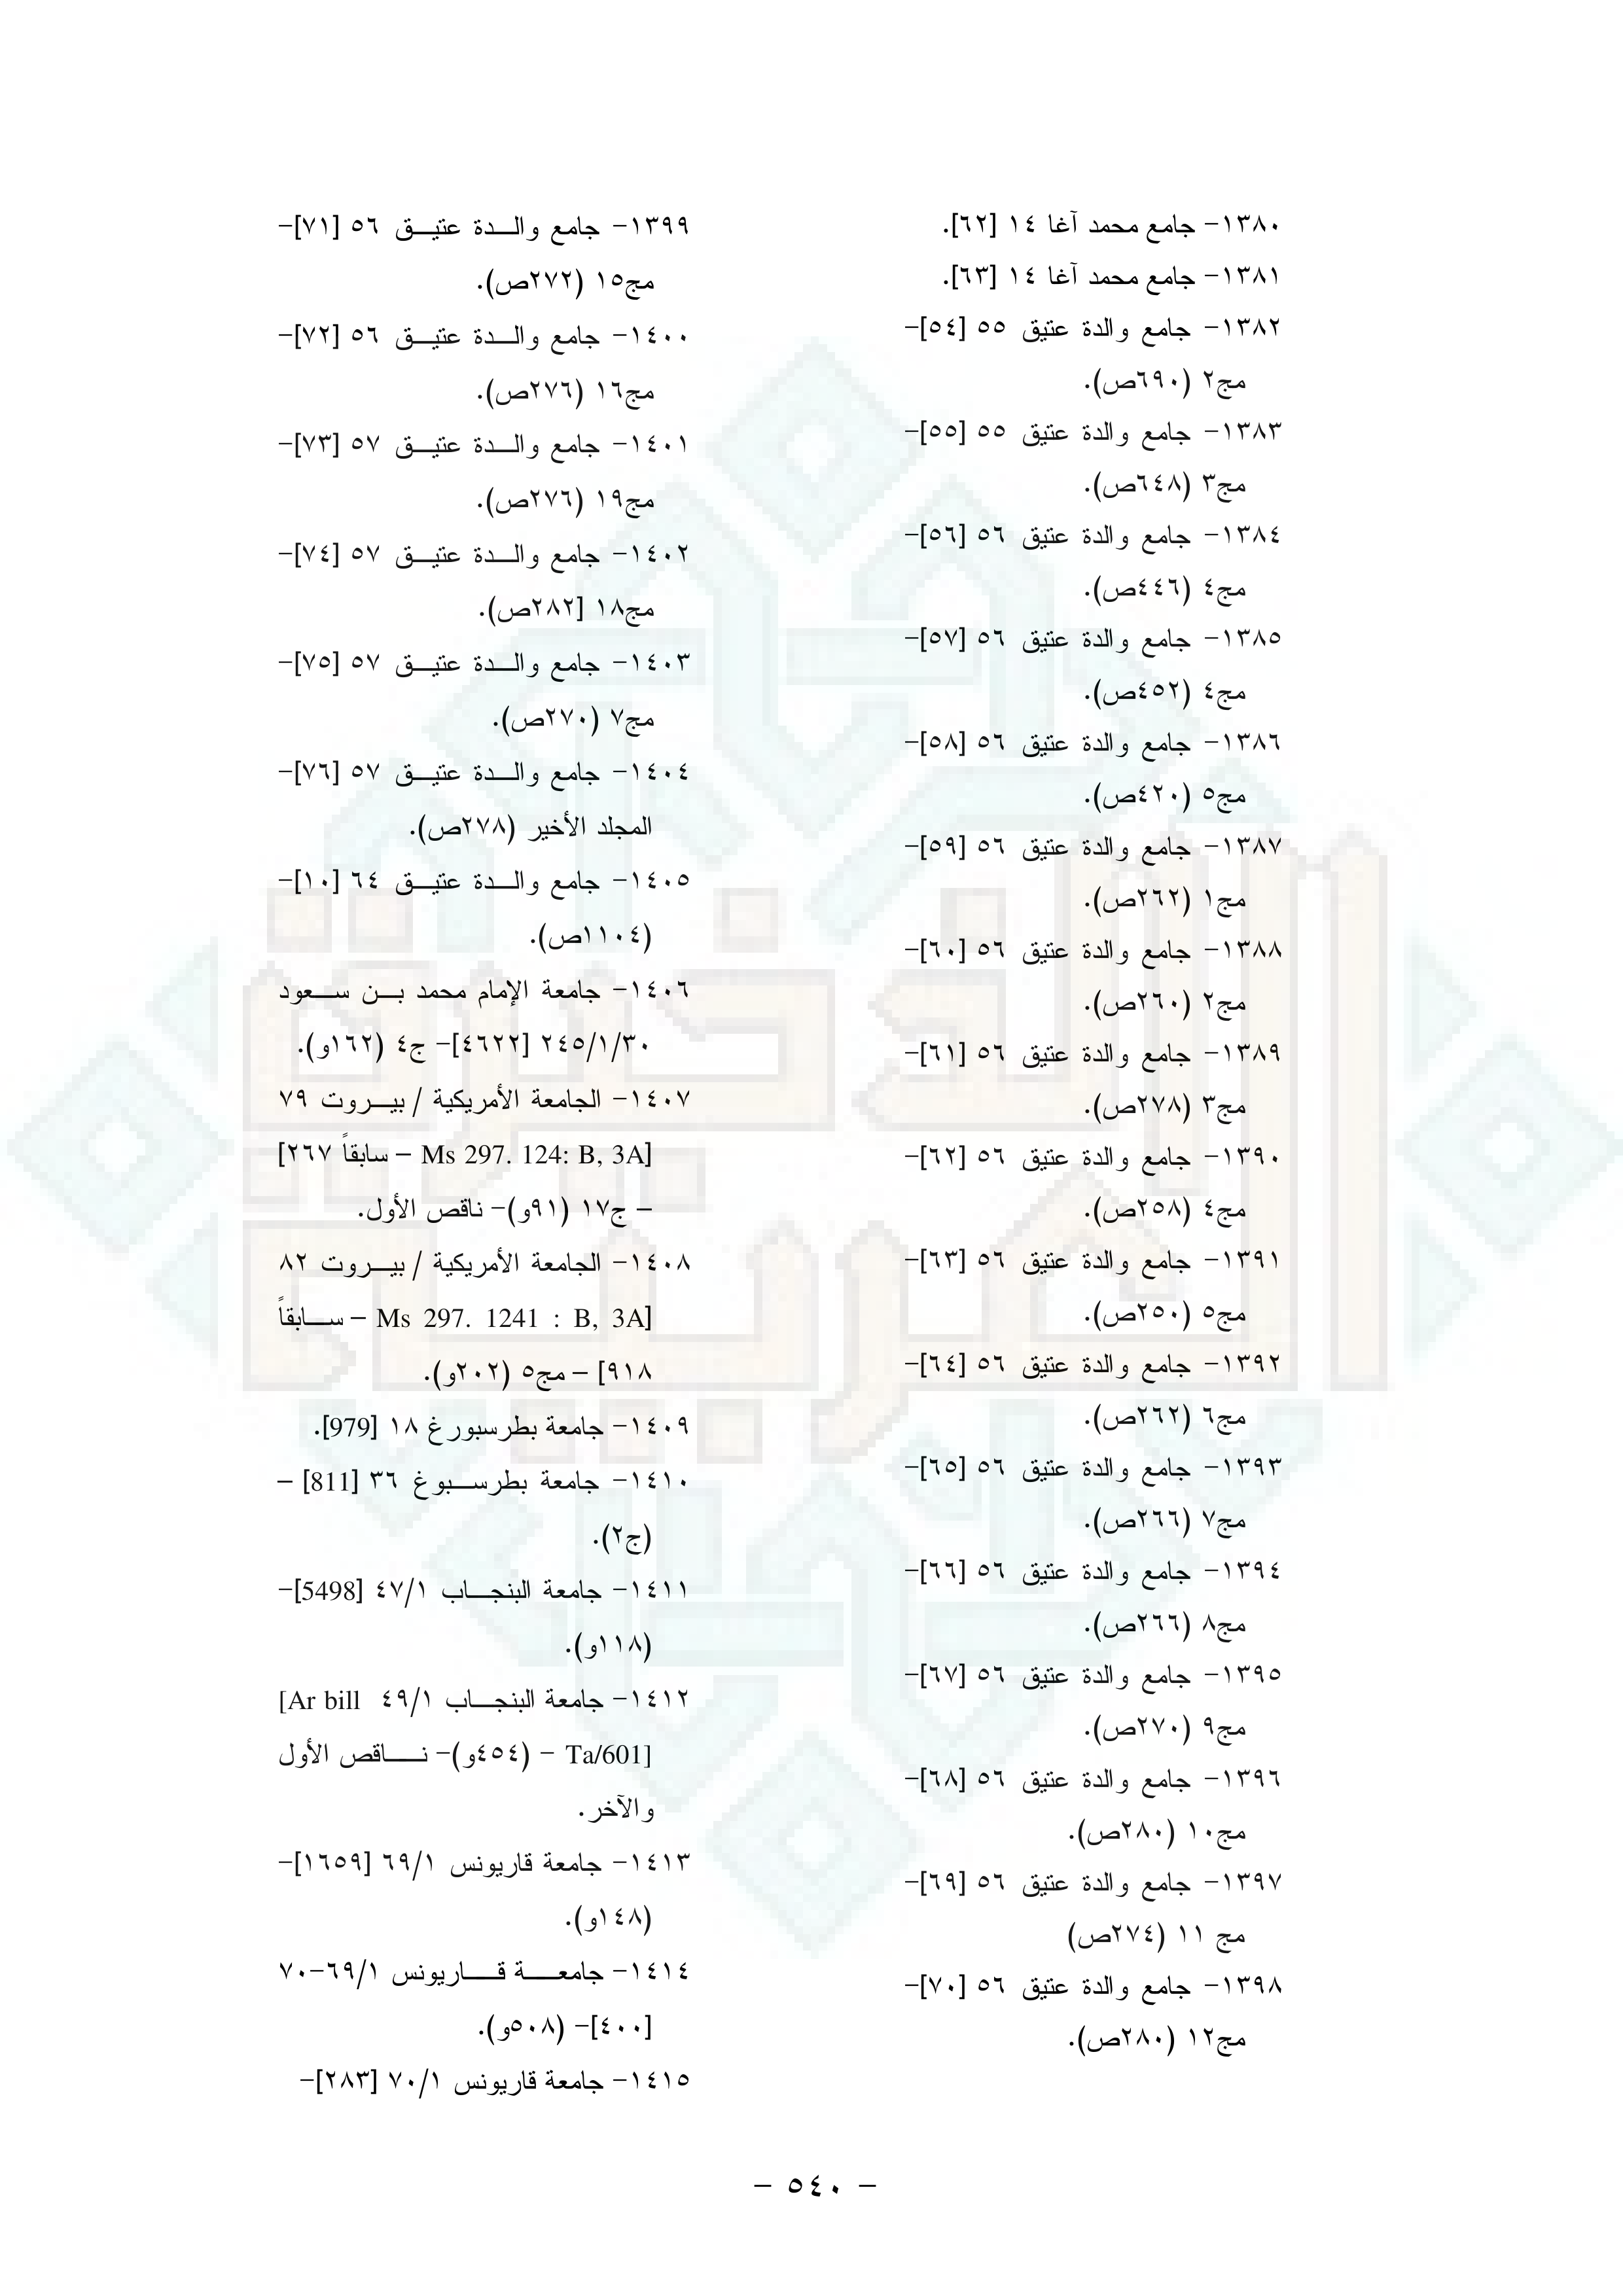 ١٣٨٠- جامع محمد آغا ١٤ [٦٢].
١٣٨١- جامع محمد آغا ١٤ [٦٣].
١٣٨٢- جامع والدة عتيق ٥٥ [٥٤]-
مج٢ (٦٩٠ص).
١٣٨٣- جامع والدة عتيق ٥٥ [٥٥]-
مج٣ (٦٤٨ص).
١٣٨٤- جامع والدة عتيق ٥٦ [٥٦]-
مج٤ (٤٤٦ص).
١٣٨٥- جامع والدة عتيق ٥٦ [٥٧]-
مج٤ (٤٥٢ص).
١٣٨٦- جامع والدة عتيق ٥٦ [٥٨]-
مج٥ (٤٢٠ص).
١٣٨٧- جامع والدة عتيق ٥٦ [٥٩]-
مج١ (٢٦٢ص).
١٣٨٨- جامع والدة عتيق ٥٦ [٦٠]-
مج٢ (٢٦٠ص).
١٣٨٩- جامع والدة عتيق ٥٦ [٦١]-
مج٣ (٢٧٨ص).
١٣٩٠- جامع والدة عتيق ٥٦ [٦٢]-
مج٤ (٢٥٨ص).
١٣٩١- جامع والدة عتيق ٥٦ [٦٣]-
مج٥ (٢٥٠ص).
١٣٩٢- جامع والدة عتيق ٥٦ [٦٤]-
مج٦ (٢٦٢ص).
١٣٩٣- جامع والدة عتيق ٥٦ [٦٥]-
مج٧ (٢٦٦ص).
١٣٩٤- جامع والدة عتيق ٥٦ [٦٦]-
مج٨ (٢٦٦ص).
١٣٩٥- جامع والدة عتيق ٥٦ [٦٧]-
مج٩ (٢٧٠ص).
١٣٩٦- جامع والدة عتيق ٥٦ [٦٨]-
مج١٠ (٢٨٠ص).
١٣٩٧- جامع والدة عتيق ٥٦ [٦٩]-
مج ١١ (٢٧٤ص)
١٣٩٨- جامع والدة عتيق ٥٦ [٧٠]-
مج١٢ (٢٨٠ص).
١٣٩٩- جامع والدة عتيق ٥٦ [٧١]-
مج١٥ (٢٧٢ص).
١٤٠٠- جامع والدة عتيق ٥٦ [٧٢]-
مج١٦ (٢٧٦ص).
١٤٠١- جامع والدة عتيق ٥٧ [٧٣]-
مج١٩ (٢٧٦ص).
١٤٠٢- جامع والدة عتيق ٥٧ [٧٤]-
مج١٨ [٢٨٢ص).
١٤٠٣- جامع والدة عتيق ٥٧ [٧٥]-
مج٧ (٢٧٠ص).
١٤٠٤- جامع والدة عتيق ٥٧ [٧٦]-
المجلد الأخير (٢٧٨ص).
١٤٠٥- جامع والدة عتيق ٦٤ [١٠]-
(١١٠٤ص).
١٤٠٦- جامعة الإمام محمد بن سعود
٢٤٥/١/٣٠ [٤٦٢٢]- ج٤ (١٦٢و).
١٤٠٧- الجامعة الأمريكية / بيروت ٧٩
[Ms 297. 124: B, 3A – سابقاً ٢٦٧]
– ج١٧ (٩١و)- ناقص الأول.
١٤٠٨- الجامعة الأمريكية / بيروت ٨٢
[Ms 297. 1241 : B, 3A – سابقاً
٩١٨] – مج٥ (٢٠٢و).
١٤٠٩- جامعة بطرسبورغ ١٨ [979].
١٤١٠- جامعة بطرسبوغ ٣٦ [811] –
(ج٢).
١٤١١- جامعة البنجاب ٤٧/١ [5498]-
(١١٨و).
١٤١٢- جامعة البنجاب ٤٩/١ [Ar bill
Ta/601] - (٤٥٤و)- ناقص الأول
والآخر.
١٤١٣- جامعة قاريونس ٦٩/١ [١٦٥٩]-
(١٤٨و).
١٤١٤- جامعة قاريونس ٦٩/١-٧٠
[٤٠٠]- (٥٠٨و).
١٤١٥- جامعة قاريونس ٧٠/١ [٢٨٣]-
- ٥٤٠ -
الذخيرة العربية